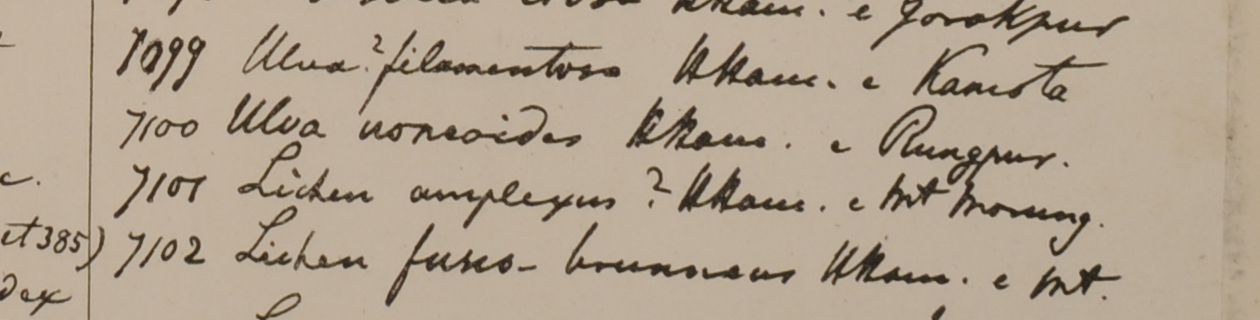 e Gorakpur
7099 Ulva? filamentosa HHam. e Kamota
7100 Ulva HHam. e Rungpur.
7101 Lichen amplexus? HHam. e Mt Morung.
et 385) 7102 Lichen fusco-brunneus HHam. e Mt.
dex